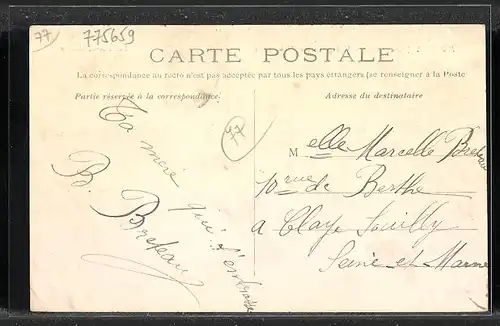 77
775659
CARTE POSTALE
La correspondance au recto n'est pas acceptée par tous les pays étrangers (se renseigner à la Poste
Partie réservée à la correspondance
Adresse du destinataire
77
Ta mère qui t'embrasse
B. Breteau
Melle Marcelle Breteau
10 rue de Berthe
a Claye Souilly
Seine et Marne